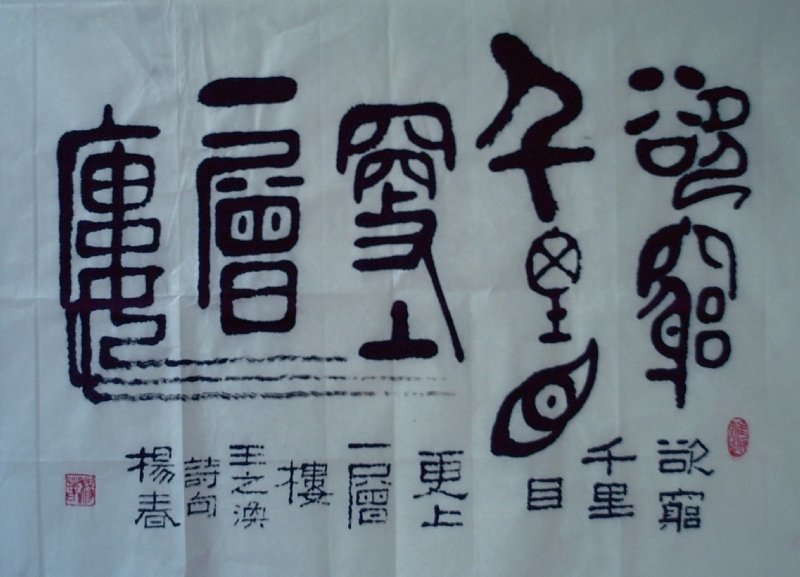 欲窮
千里目
更上
一層
樓
欲窮
千里
目
更上
一層
樓
王之渙
詩句
楊春